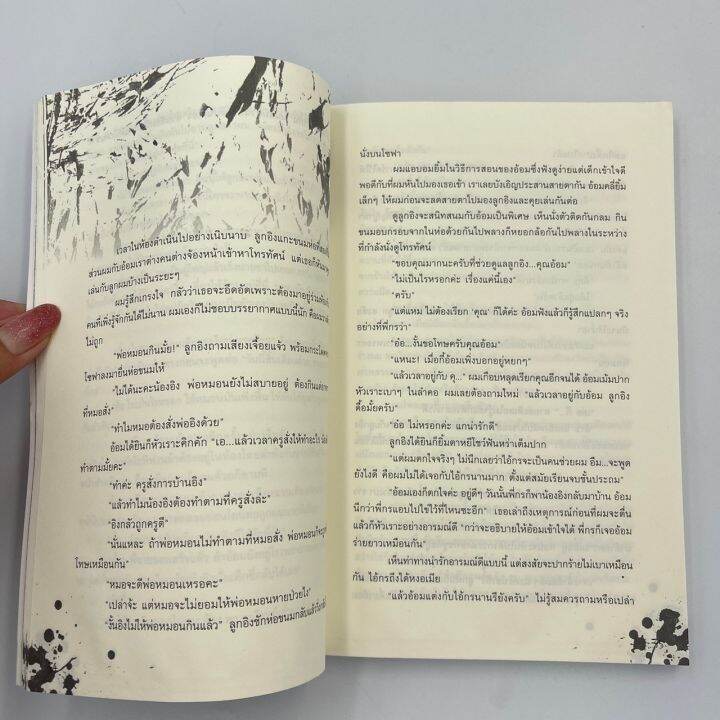 เวลาในห้องดำเนินไปอย่างเนิบนาบ ลูกอิงแกะขนมห่อที่
ส่วนผมกับอ้อมเราต่างคนต่างจ้องหน้าเข้าหาโทรทัศน์ แต่เธอก็
เล่นกับลูกผมบ้างเป็นระยะๆ
ผมรู้สึกเกรงใจ กลัวว่าเธอจะอึดอัดเพราะต้องมาอยู่ร่วม
คนที่เพิ่งรู้จักกันได้ไม่นาน ผมเองก็ไม่ชอบบรรยากาศแบบนี้นัก
ไม่ถูก
“พ่อหมอนกินมั้ย!” ลูกอิงถามเสียงเจื้อยแจ้ว พร้อม
โซฟาลงมายื่นห่อขนมให้
“ไม่ได้นะคะน้องอิง พ่อหมอนยังไม่สบายอยู่ ต้องกิน
ที่หมอสั่ง”
“ทำไมหมอต้องสั่งพ่ออิงด้วย”
อ้อมได้ยินก็หัวเราะคิกคัก “เอ...แล้วเวลาครูสั่งให้ทำอะไร
ทำตามมั้ยคะ”
“ทำค่ะ ครูสั่งการบ้านอิง”
“แล้วทำไมน้องอิงต้องทำตามที่ครูสั่งล่ะ”
“อิงกลัวถูกครูตี”
“นั่นแหละ ถ้าพ่อหมอนไม่ทำตามที่หมอสั่ง พ่อหมอนก็จะถูก
โทษเหมือนกัน”
“หมอจะตีพ่อหมอนเหรอคะ”
“เปล่าจ้ะ แต่หมอจะไม่ยอมให้พ่อหมอนหายป่วยไง”
“งั้นอิงไม่ให้พ่อหมอนกินแล้ว” ลูกอิงชักห่อขนมกลับ
นั่งบนโซฟา
ผมแอบอมยิ้มในวิธีการสอนของอ้อมซึ่งฟังดูง่ายแต่เด็กเข้าใจดี
พอดีกับที่ผมหันไปมองเธอเข้า เราเลยบังเอิญประสานสายตากัน อ้อมคลี่ยิ้ม
เล็กๆ ให้ผมก่อนจะลดสายตาไปมองลูกอิงและคุยเล่นกันต่อ
ดูลูกอิงจะสนิทสนมกับอ้อมเป็นพิเศษ เห็นนั่งตัวติดกันกลม กิน
ขนมอบกรอบจากในห่อด้วยกันไปพลางก็หยอกล้อกันไปพลางในระหว่าง
ที่กำลังนั่งดูโทรทัศน์
“ขอบคุณมากนะครับที่ช่วยดูแลลูกอิง...คุณอ้อม”
“ไม่เป็นไรหรอกค่ะ เรื่องแค่นี้เอง”
“ครับ”
“แต่แหม ไม่ต้องเรียก ‘คุณ’ ก็ได้ค่ะ อ้อมฟังแล้วก็รู้สึกแปลกๆ จริง
อย่างที่พี่กรว่า”
“อ้อ...งั้นขอโทษครับคุณอ้อม”
“แหนะ! เมื่อกี้อ้อมเพิ่งบอกอยู่หยกๆ”
“แล้วเวลาอยู่กับ คุ...” ผมเกือบหลุดเรียกคุณอีกจนได้ อ้อมเม้มปาก
หัวเราะเบาๆ ในลำคอ ผมเลยต้องถามใหม่ “แล้วเวลาอยู่กับอ้อม ลูกอิง
ดื้อมั้ยครับ”
“อ๋อ ไม่หรอกค่ะ แกน่ารักดี”
ลูกอิงได้ยินก็ยิ้มตาหยีโชว์ฟันหว่าเต็มปาก
“แต่ผมตกใจจริงๆ ไม่นึกเลยว่าไอ้กรจะเป็นคนช่วยผม อืม...จะพูด
ยังไงดี คือผมไม่ได้เจอกับไอ้กรนานมาก ตั้งแต่สมัยเรียนจบชั้นประถม”
“อ้อมเองก็ตกใจค่ะ อยู่ดีๆ วันนั้นพี่กรก็พาน้องอิงกลับมาบ้าน อ้อม
นึกว่าพี่กรแอบไปไข่ไว้ที่ไหนซะอีก” เธอเล่าถึงเหตุการณ์ก่อนที่ผมจะตื่น
แล้วก็หัวเราะอย่างอารมณ์ดี “กว่าจะอธิบายให้อ้อมเข้าใจได้ พี่กรก็เจออ้อม
ร่ายยาวเหมือนกัน”
เห็นท่าทางน่ารักอารมณ์ดีแบบนี้ แต่สงสัยจะปากร้ายไม่เบาเหมือน
กัน ไอ้กรถึงได้หงอเมีย
“แล้วอ้อมแต่งกับไอ้กรนานรึยังครับ” ไม่รู้สมควรถามหรือเปล่า